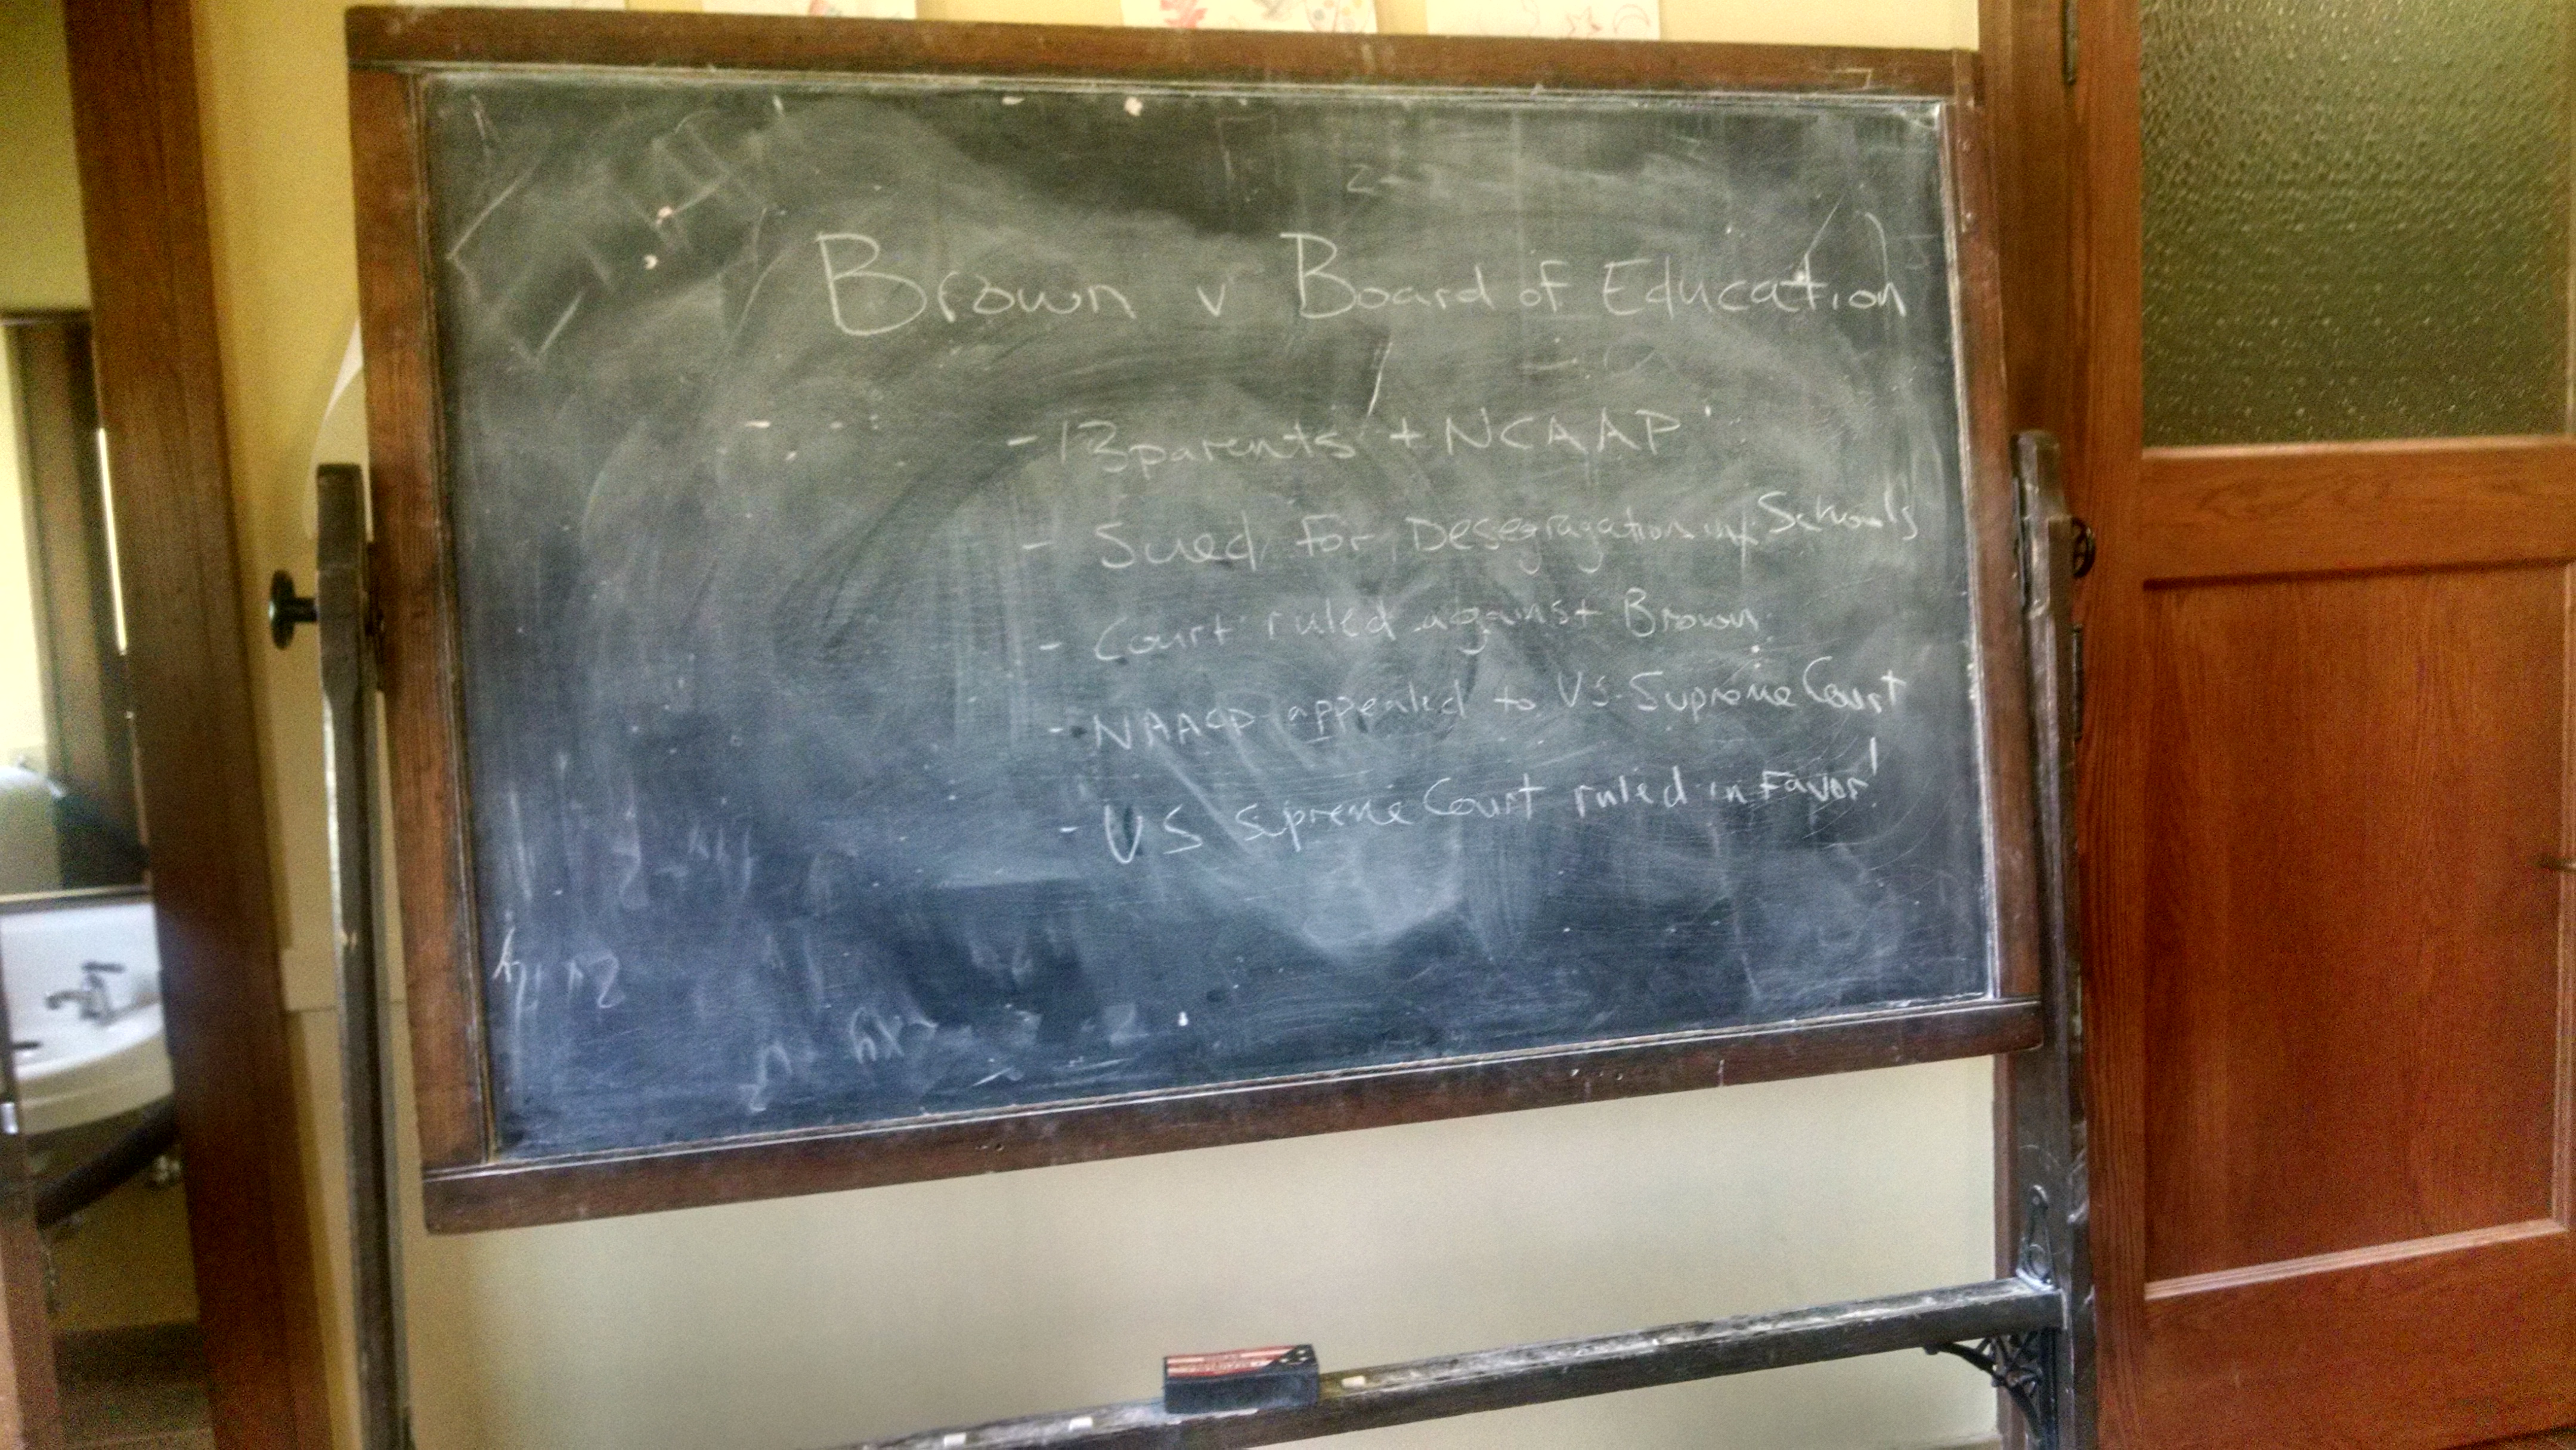 Brown v Board of Education
- 13 parents + NCAAP
- Sued For Desegragation in Schools
- Court ruled against Brown
- NAACP appealed to US Supreme Court
- US Supreme Court ruled in Favor!